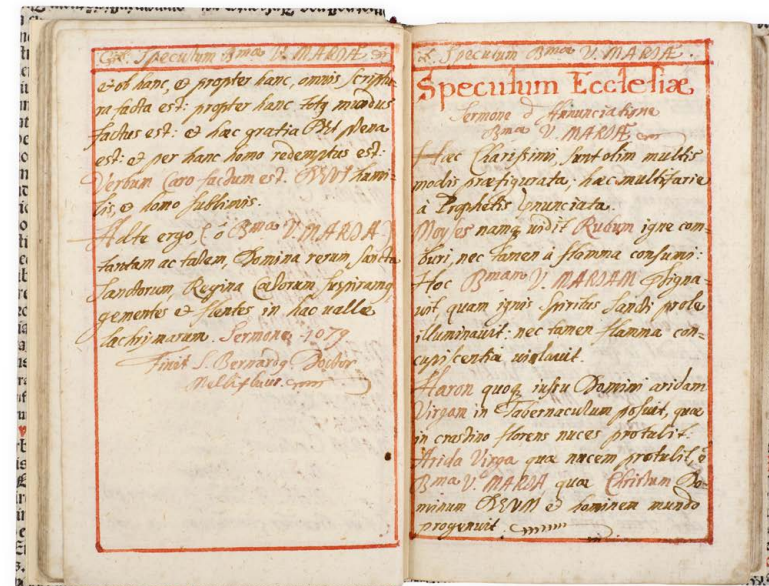 Speculum Bmæ V. MARIÆ
et ob hanc, et propter hanc, omnis scriptu-
ra facta est: propter hanc totq mundus
factus est: et hæc gratia DEI plena
est: et per hanc homo redemptus est:
Verbum Caro factum est. DEUS humi-
lis, et homo sublimis.
Ad te ergo, ô Bma V. MARIA
tantam ac talem, Domina rerum, sancta
Sanctorum, Regina Cælorum, suspiramq
gementes et flentes in hac valle
lachrymarum. Sermone, 1079
Finit S. Bernardq Doctor
Mellifluus.
Speculum Bmæ V. MARIÆ.
Speculum Ecclesiæ
Sermone d Annunciatione
Bmæ V. MARIÆ
Hec Charissimi, sunt olim multis
modis præfigurata; hæc multifarie
à Prophetis enunciata.
Moyses namq, vidit Rubum igne com-
buri, nec tamen à flamma consumi:
Hoc Bmam V. MARIAM
vit, quam ignis Spiritus Sancti prole
illuminavit: nec tamen flamma con-
cupiscentiæ violavit.
Aaron quoq, iussu Domini aridam
Virgam in Tabernaculum posuit, quæ
in crastino florens nuces protulit:
Arida Virga quæ nucem protulit, ê
Bma V. MARIA quæ Christum Do-
minum DEUM et hominem mundo
progenuit.